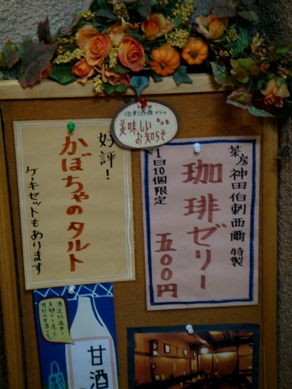 伯剌西爾からの
美味しい
お知らせ
好評！
かぼちゃのタルト
ケーキセットもあります
神田伯剌西爾特製
珈琲ゼリー
1日10個限定
五〇〇円
甘酒